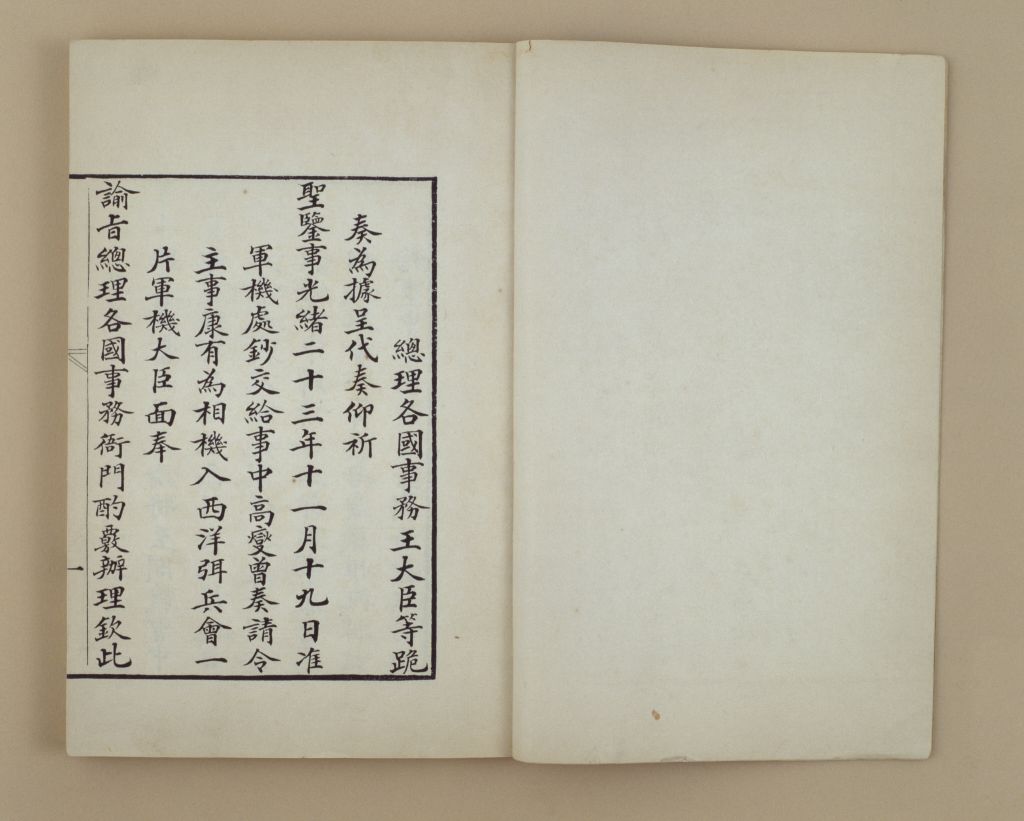 總理各國事務王大臣等跪
奏為據呈代奏仰祈
聖鑒事光緒二十三年十一月十九日准
軍機處鈔交給事中高燮曾奏請令
主事康有為相機入西洋弭兵會一
片軍機大臣面奉
諭旨總理各國事務衙門酌覈辦理欽此
一